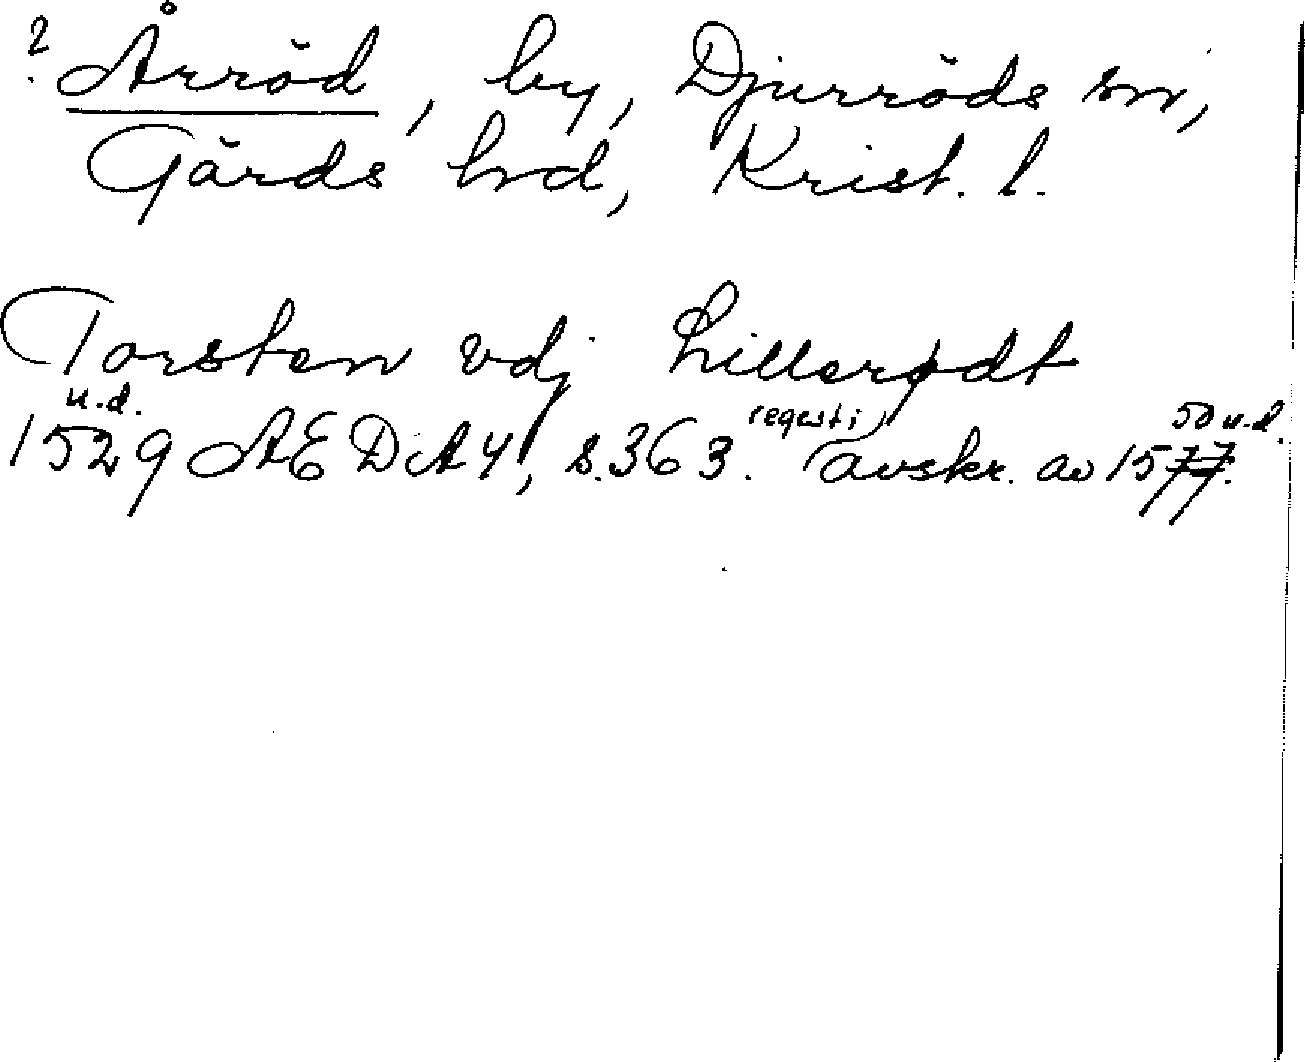 ? Årröd, by, Djurröds sn,
Gärds hrd, Krist. l.
Torsten vdj Lillerødt
u.d. regesti 50 u.d.
1529 AEDA 4, s. 363. (avskr. av 1577.